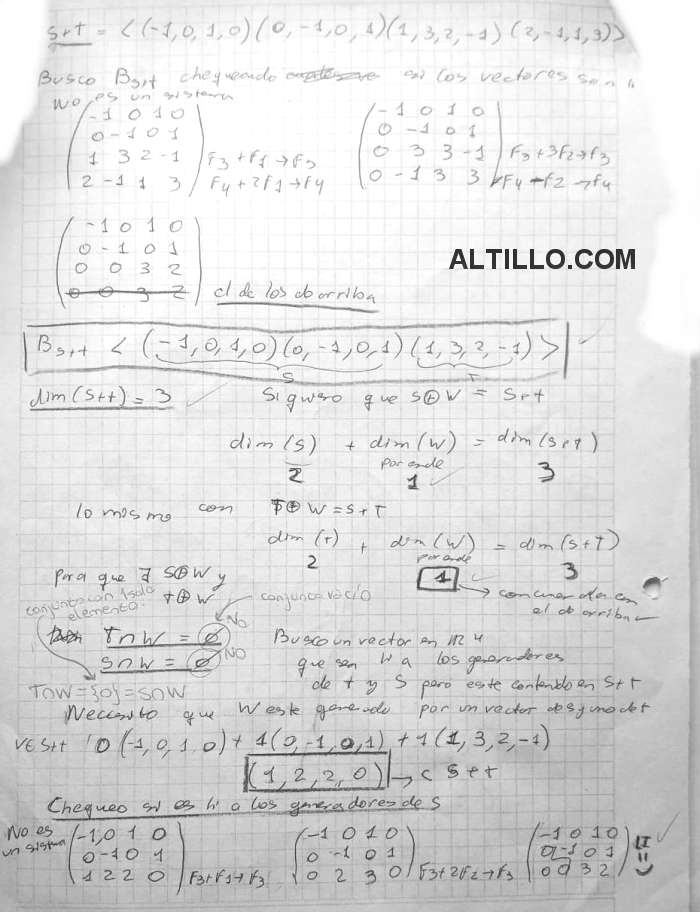 S+T = < (-1,0,1,0) (0,-1,0,1) (1,3,2,-1) (2,-1,1,3)>
Busco B S+t chequeando si los vectores son li
No es un sistema
-1 0 1 0
0 -1 0 1
1 3 2 -1 F3+F1→F3
2 -1 1 3 F4+2F1→F4
-1 0 1 0
0 -1 0 1
0 3 3 -1 F3+3F2→F3
0 -1 3 3 F4-F2→F4
-1 0 1 0
0 -1 0 1
0 0 3 2
0 0 3 2 cl de los de arriba
ALTILLO.COM
B S+t < (-1,0,1,0) (0,-1,0,1) (1,3,2,-1) >
S T
dim (S+t) = 3 Si quiero que S⊕W = S+t
dim (S) + dim (W) = dim (S+T)
por ende
2 1 3
lo mismo con T⊕W = S+T
dim (T) + dim (W) = dim (S+T)
2 por ende 3
1
→ concuerda con el de arriba
Para que ∃ S⊕W y
T⊕W
conjunto con 1 solo elemento.
conjunto vacío
T∩W = ∅ NO
S∩W = ∅ NO
T∩W = {0} = S∩W
Busco un vector en IR 4
que sea li a los generadores
de t y S pero este contenido en S+t
Necesito que W este generado por un vector de S y uno de t
V∈S+t 0 (-1,0,1,0) + 1(0,-1,0,1) + 1 (1,3,2,-1)
(1,2,2,0) → ⊂ S+t
Chequeo si es li a los generadores de S
No es un sistema
-1,0 1 0
0 -1 0 1
1 2 2 0 F3+F1→F3
-1 0 1 0
0 -1 0 1
0 2 3 0 F3+2F2→F3
-1 0 1 0
0 -1 0 1
0 0 3 2
LI =)